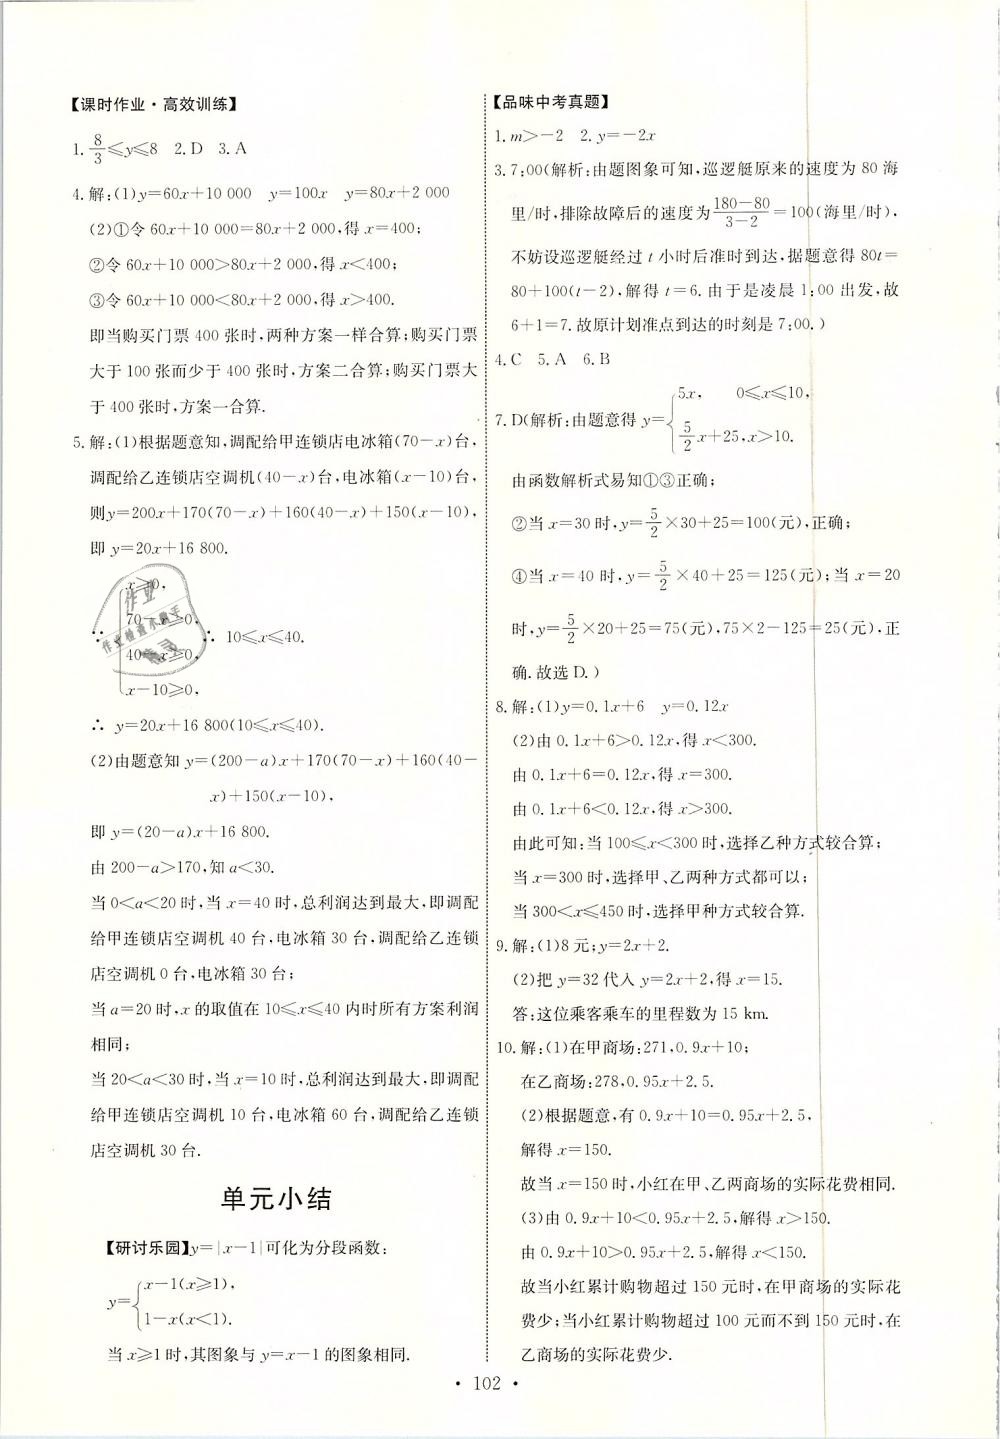 【课时作业·高效训练】
1. 8/3≤y≤8　2. D　3. A
4. 解:(1)y=60x+10 000　y=100x　y=80x+2 000
(2)①令 60x+10 000=80x+2 000,得 x=400;
②令 60x+10 000>80x+2 000,得 x<400;
③令 60x+10 000<80x+2 000,得 x>400.
即当购买门票 400 张时,两种方案一样合算;购买门票
大于 100 张而少于 400 张时,方案二合算;购买门票大
于 400 张时,方案一合算.
5. 解:(1)根据题意知,调配给甲连锁店电冰箱(70-x)台,
调配给乙连锁店空调机(40-x)台,电冰箱(x-10)台,
则y=200x+170(70-x)+160(40-x)+150(x-10),
即 y=20x+16 800.
x≥0,
70-x≥0,
∵ ∴ 10≤x≤40.
40-x≥0,
x-10≥0,
∴ y=20x+16 800(10≤x≤40).
(2)由题意知 y=(200-a)x+170(70-x)+160(40-
x)+150(x-10),
即 y=(20-a)x+16 800.
由 200-a>170,知 a<30.
当 0<a<20 时,当 x=40 时,总利润达到最大,即调配
给甲连锁店空调机 40 台,电冰箱 30 台,调配给乙连锁
店空调机 0 台,电冰箱 30 台;
当 a=20 时,x 的取值在 10≤x≤40 内时所有方案利润
相同;
当 20<a<30 时,当 x=10 时,总利润达到最大,即调配
给甲连锁店空调机 10 台,电冰箱 60 台,调配给乙连锁
店空调机 30 台.
单元小结
【研讨乐园】y=|x-1|可化为分段函数:
y={x-1(x≥1),
1-x(x<1).
当 x≥1 时,其图象与 y=x-1 的图象相同.
【品味中考真题】
1. m>-2　2. y=-2x
3. 7:00(解析:由题图象可知,巡逻艇原来的速度为 80 海
里/时,排除故障后的速度为(180-80)/(3-2)=100(海里/时),
不妨设巡逻艇经过 t 小时后准时到达,据题意得 80t=
80+100(t-2),解得 t=6. 由于是凌晨 1:00 出发,故
6+1=7. 故原计划准点到达的时刻是 7:00.)
4. C　5. A　6. B
7. D(解析:由题意得 y={5x,　0≤x≤10,
5/2x+25,x>10.
由函数解析式易知①③正确;
②当 x=30 时,y=5/2×30+25=100(元),正确;
④当 x=40 时,y=5/2×40+25=125(元);当 x=20
时,y=5/2×20+25=75(元),75×2-125=25(元),正
确. 故选 D.)
8. 解:(1)y=0.1x+6　y=0.12x
(2)由 0.1x+6>0.12x,得 x<300.
由 0.1x+6=0.12x,得 x=300.
由 0.1x+6<0.12x,得 x>300.
由此可知:当 100≤x<300 时,选择乙种方式较合算;
当 x=300 时,选择甲、乙两种方式都可以;
当 300<x≤450 时,选择甲种方式较合算.
9. 解:(1)8 元;y=2x+2.
(2)把 y=32 代入 y=2x+2,得 x=15.
答:这位乘客乘车的里程数为 15 km.
10. 解:(1)在甲商场:271,0.9x+10;
在乙商场:278,0.95x+2.5.
(2)根据题意,有 0.9x+10=0.95x+2.5,
解得 x=150.
故当 x=150 时,小红在甲、乙两商场的实际花费相同.
(3)由 0.9x+10<0.95x+2.5,解得 x>150.
由 0.9x+10>0.95x+2.5,解得 x<150.
故当小红累计购物超过 150 元时,在甲商场的实际花
费少;当小红累计购物超过 100 元而不到 150 元时,在
乙商场的实际花费少.
• 102 •